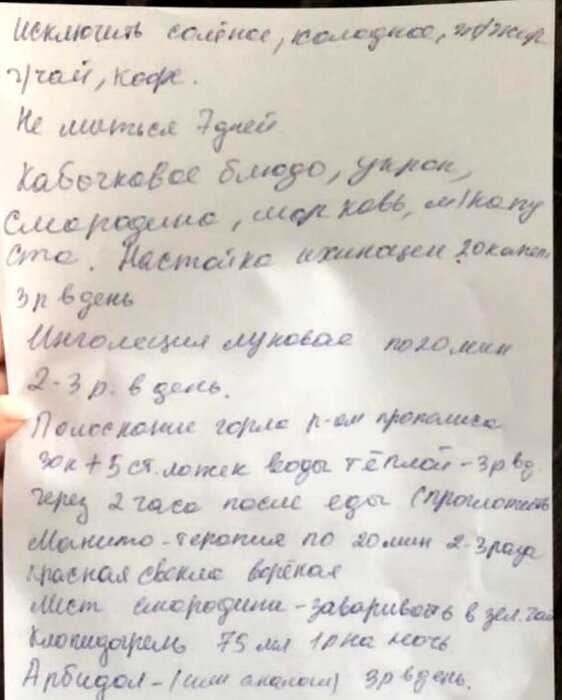 Исключить солёное, холодное, ж/жир
ч/чай, кофе.
Не мыться 7 дней
Кабачковое блюдо, укроп,
Смородина, морковь, м/капу
ста. Настойка ихинацеи 20 капел
3 р в день
Инголяция луковая по 20 мин
2-3 р. в день.
Полоскание горла р-ом прополиса
30к + 5 ст. ложек воды тёплой - 3 р в д.
через 2 часа после еды (проглотить
Магнито-терапия по 20 мин 2-3 раза
Красная свекла варёная
Лист смородины - заваривать в зел. чай
Клопидогрель 75 мл 1 р на ночь
Арбидол - (или аналоги) 3 р в день.